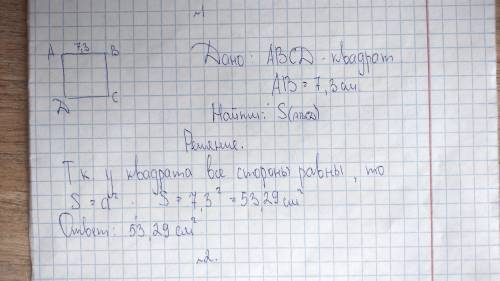 №1
A 7,3 B
D C
Дано: ABCD - квадрат
AB = 7,3 см
Найти: S(ABCD)
Решение.
Т.к. у квадрата все стороны равны, то
S = a². S = 7,3² = 53,29 см²
Ответ: 53,29 см²
№2.